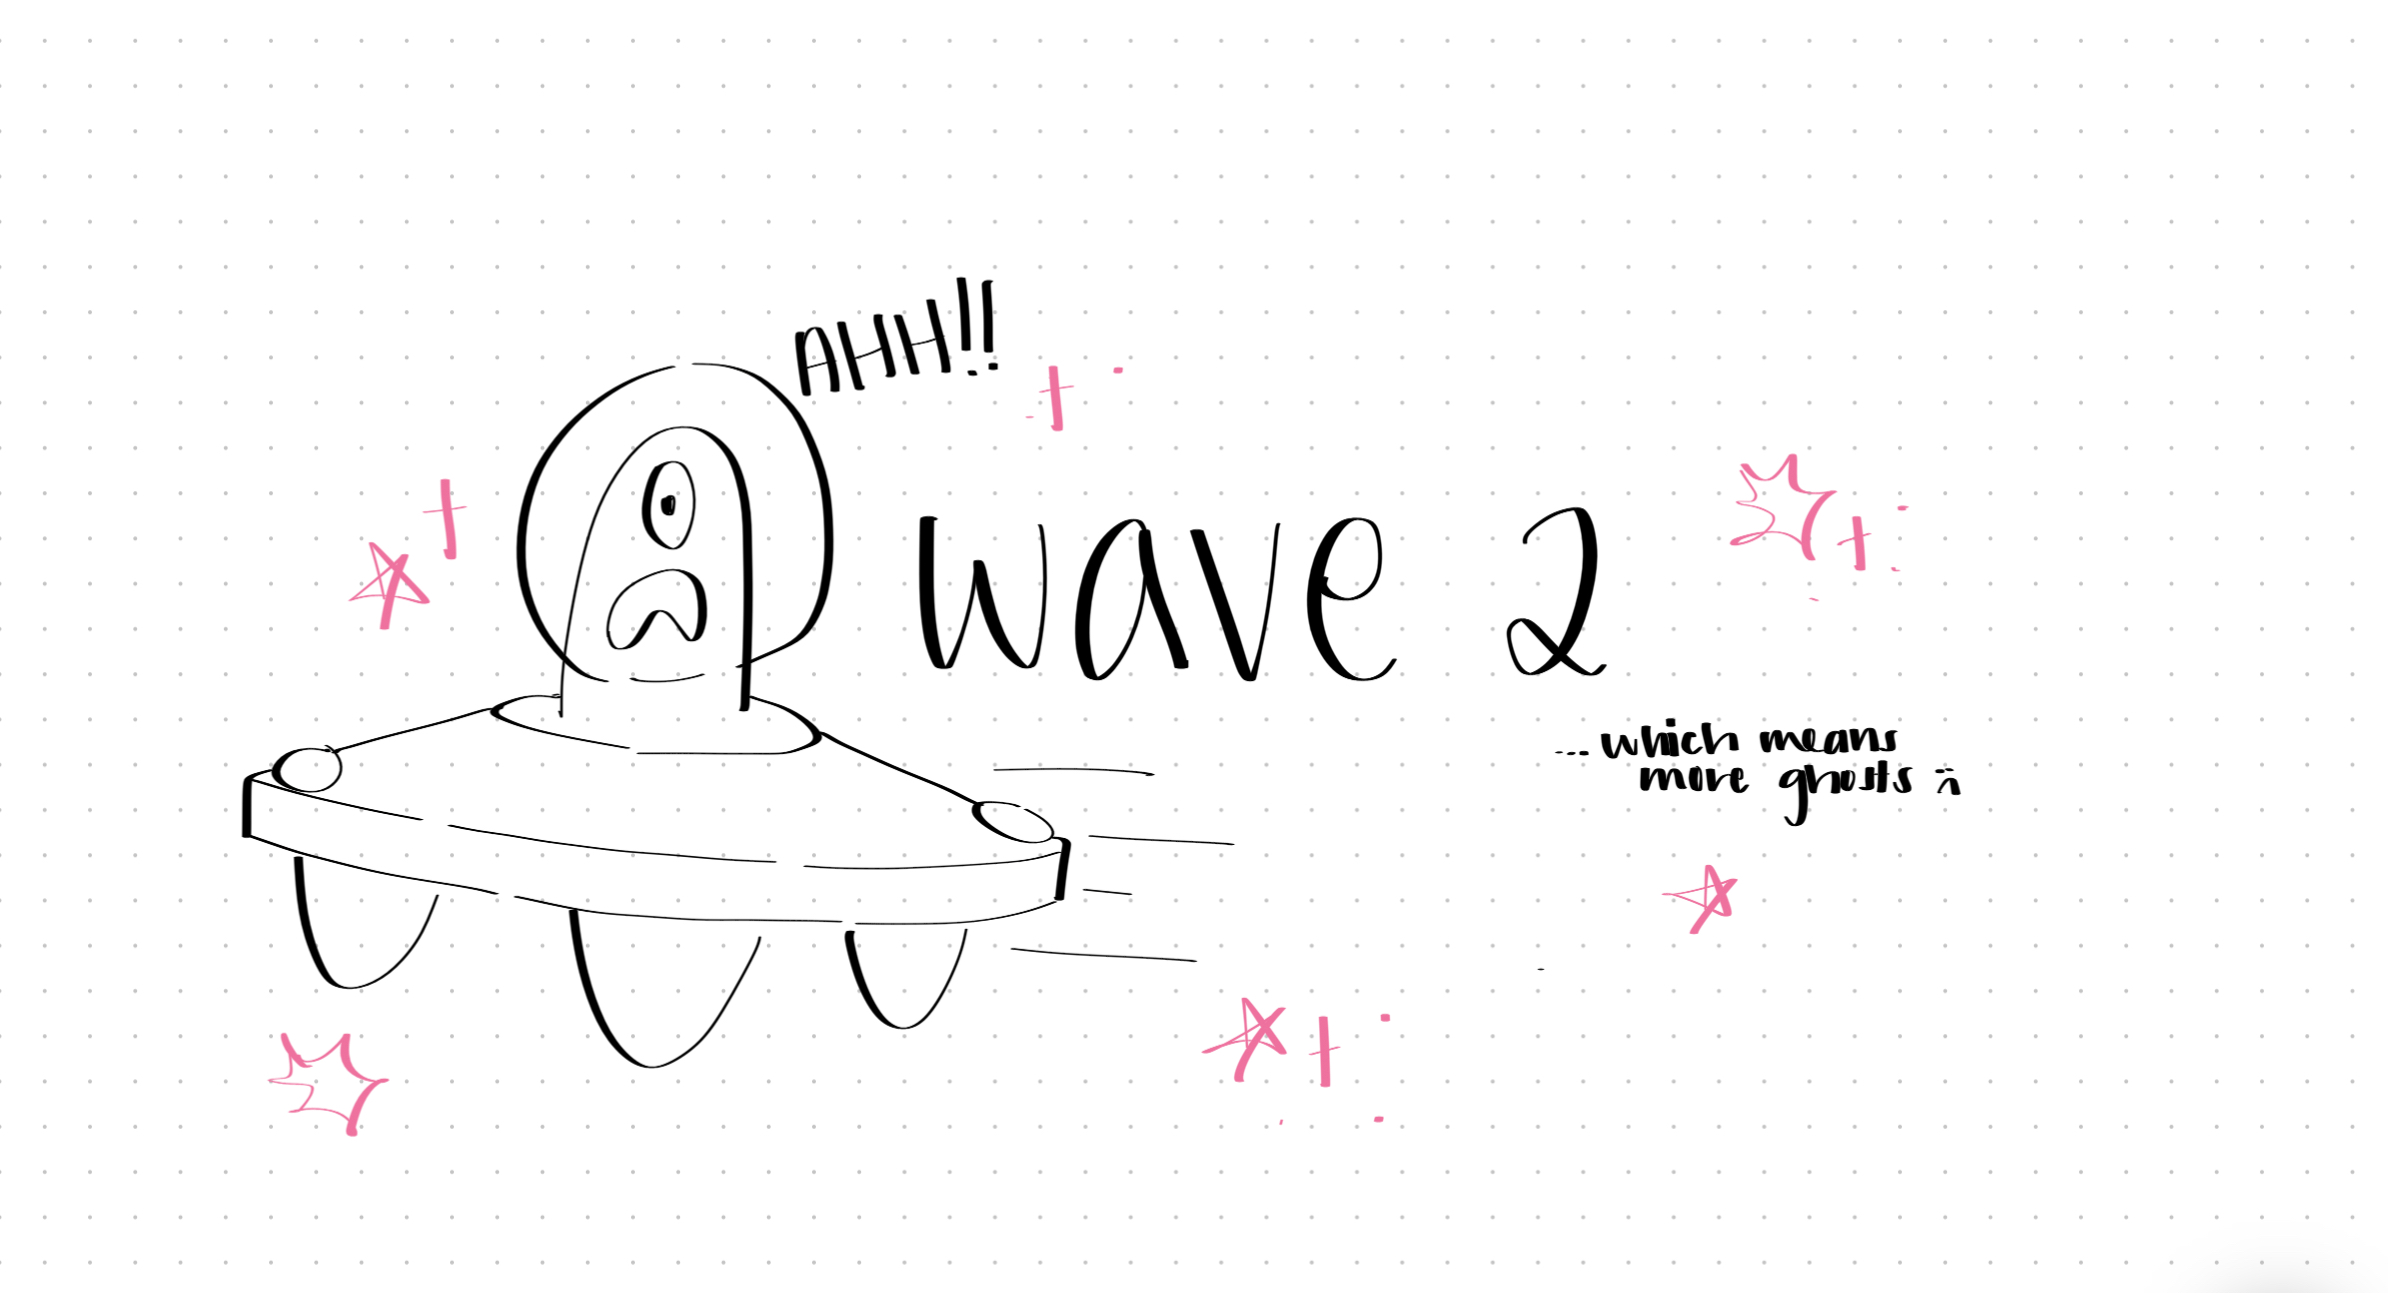 AHH!!
wave 2
...which means
more ghosts :(